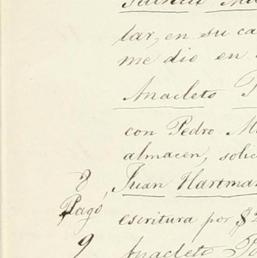 lar, en su ca
me dio en
Anacleto
con Pedro M
almacen, solic
8 Juan Hartman
Pagó
escritura por $
9
Anacleto